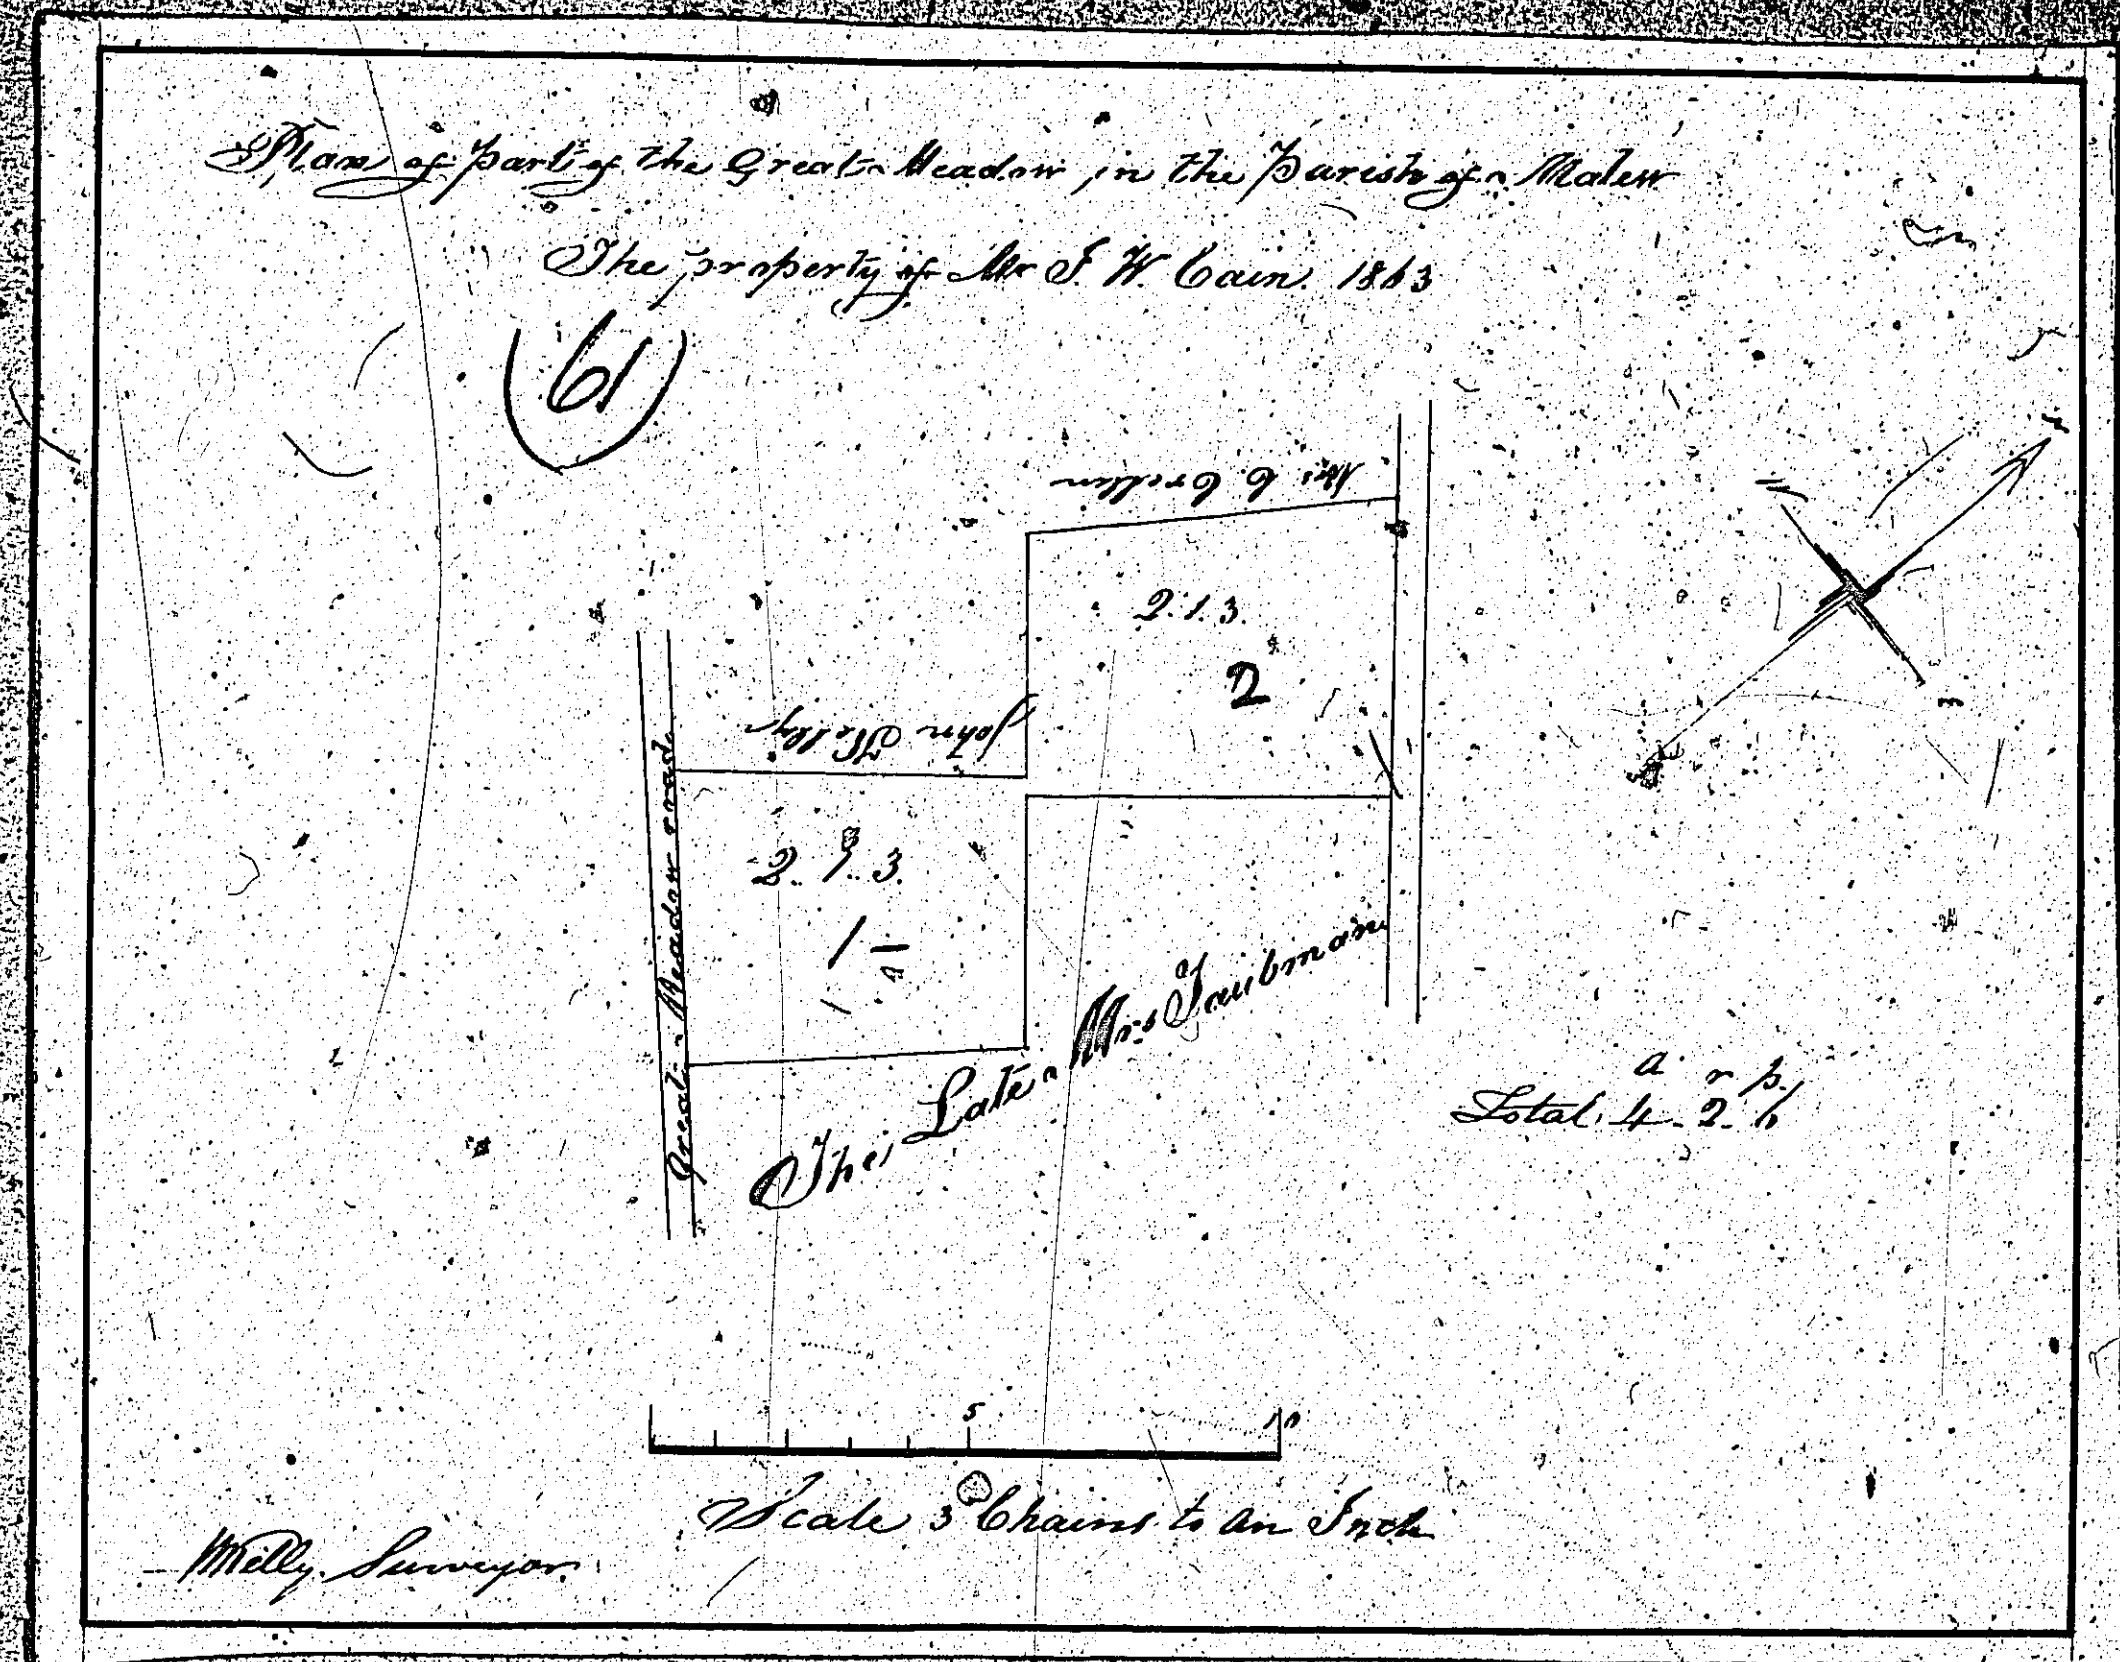 Plan of Part of the Great Meadow in the Parish of Malew
The property of Mr J. W. Cain. 1863
61
Mrs C. Crellin
2. 1. 3.
2
John Kelly
Great Meadow road
2. 1. 3.
1
The Late Mrs Taubman
a r p.
Total. 4 - 2 - 6
5 10
Scale 3 Chains to an Inch
Surveyor